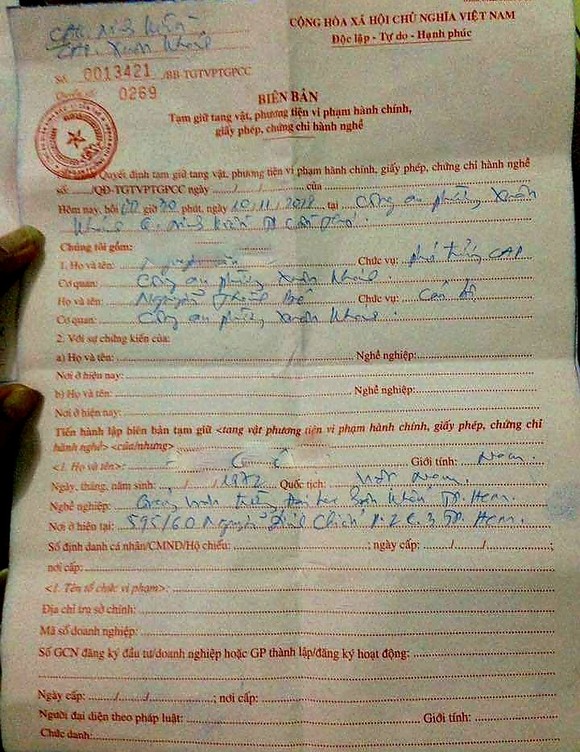 CỘNG HÒA XÃ HỘI CHỦ NGHĨA VIỆT NAM
Độc lập - Tự do - Hạnh phúc
CAQ. Ninh Kiều
CAP. Xuân Khánh
Số 0013421 /BB-TGTVPTGPCC
Quyển số: 0269
BIÊN BẢN
Tạm giữ tang vật, phương tiện vi phạm hành chính,
giấy phép, chứng chỉ hành nghề
Quyết định tạm giữ tang vật, phương tiện vi phạm hành chính, giấy phép, chứng chỉ hành nghề
số:....../QĐ-TGTVPTGPCC ngày ....../....../...... của
Hôm nay, hồi giờ 30 phút, ngày 10/11/2018 tại Công an phường Xuân
Khánh Q. Ninh Kiều TP Cần Thơ.
Chúng tôi gồm:
1. Họ và tên: Nguyễn Chức vụ: phó trưởng CAP
Cơ quan: Công an phường Xuân Khánh.
Họ và tên: Nguyễn Chức vụ: Cán bộ
Cơ quan: Công an phường Xuân Khánh.
2. Với sự chứng kiến của:
a) Họ và tên: Nghề nghiệp:
Nơi ở hiện nay:
b) Họ và tên: Nghề nghiệp:
Nơi ở hiện nay:
Tiến hành lập biên bản tạm giữ <tang vật phương tiện vi phạm hành chính, giấy phép, chứng chỉ
hành nghề> <của/nhưng>
<1. Họ và tên>: Giới tính: Nam.
Ngày, tháng, năm sinh: / /1972 Quốc tịch: Việt Nam.
Nghề nghiệp: Giảng viên trường Đại học TP. Hcm.
Nơi ở hiện tại: 595/60 Nguyễn Đình Chiểu P.2 Q.3 TP. Hcm.
Số định danh cá nhân/CMND/Hộ chiếu: ; ngày cấp: / / ;
nơi cấp:
<1. Tên tổ chức vi phạm>:
Địa chỉ trụ sở chính:
Mã số doanh nghiệp:
Số GCN đăng ký đầu tư/doanh nghiệp hoặc GP thành lập/đăng ký hoạt động:
Ngày cấp: / / ; nơi cấp:
Người đại diện theo pháp luật: Giới tính:
Chức danh: